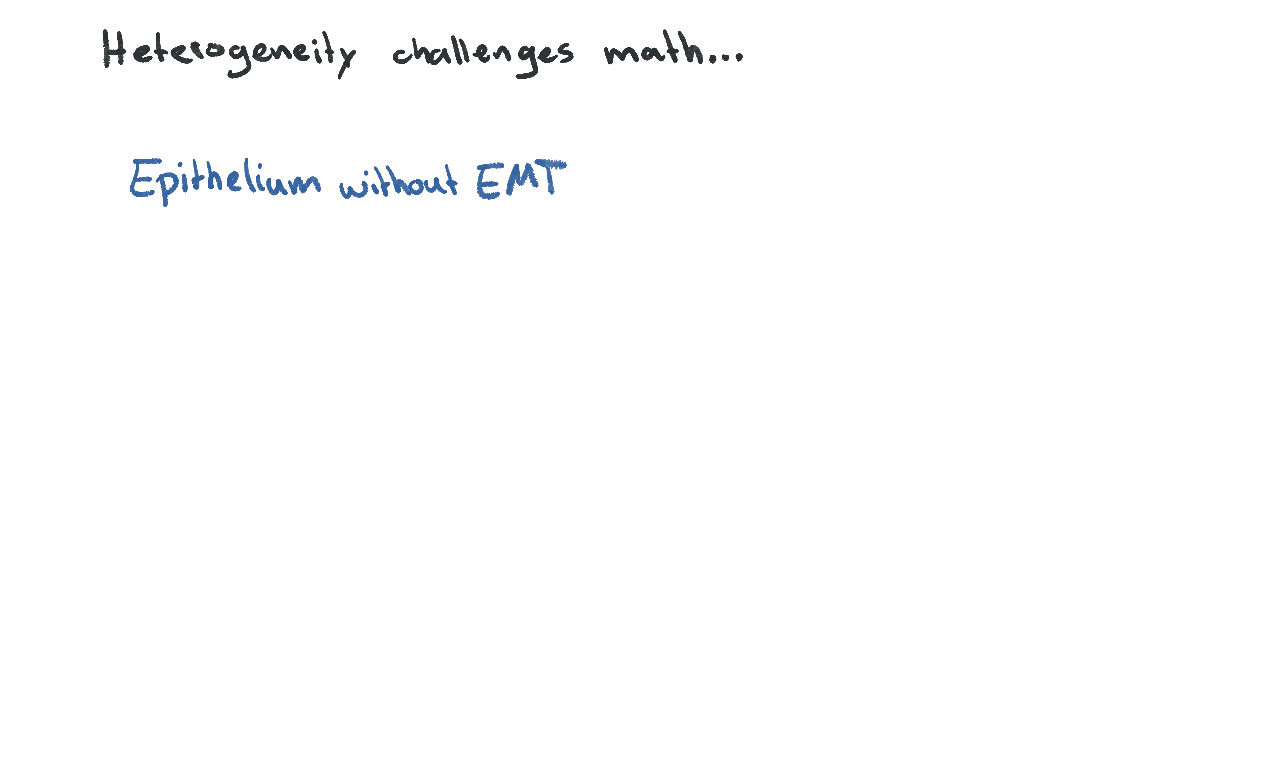 Heterogeneity challenges math...
Epithelium without EMT